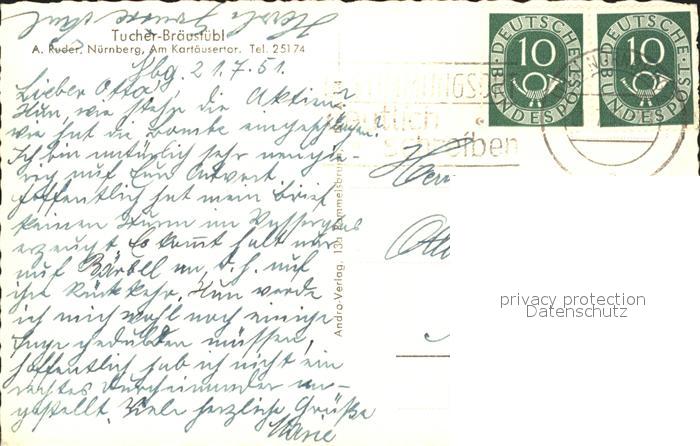 Herzl. Grüsse
Tucher-Bräustübl
A. Ruder, Nürnberg, Am Kartäusertor. Tel. 25174
Nbg. 21.7.51.
Lieber Otto!
Nun, wie stehn die Aktien,
wie hat die Bombe eingeschlagen.
Ich bin natürlich sehr neugie-
rig auf Eure Antwort.
Hoffentlich hat mein Brief
keinen Sturm im Wasserglas
erzeugt. Es kommt halt nur
auf Bärbel an, d.h. auf
ihre Rückkehr. Nun werde
ich mich wohl noch einige
Tage gedulden müssen,
hoffentlich hab ich nicht ein
rechtes Durcheinander an-
gestellt. Viele herzliche Grüße
Marie
Andro-Verlag, 13a
DEUTSCHE BUNDESPOST
10
DEUTSCHE BUNDESPOST
10
deutlich
schreiben
Herrn
Otto
privacy protection
Datenschutz